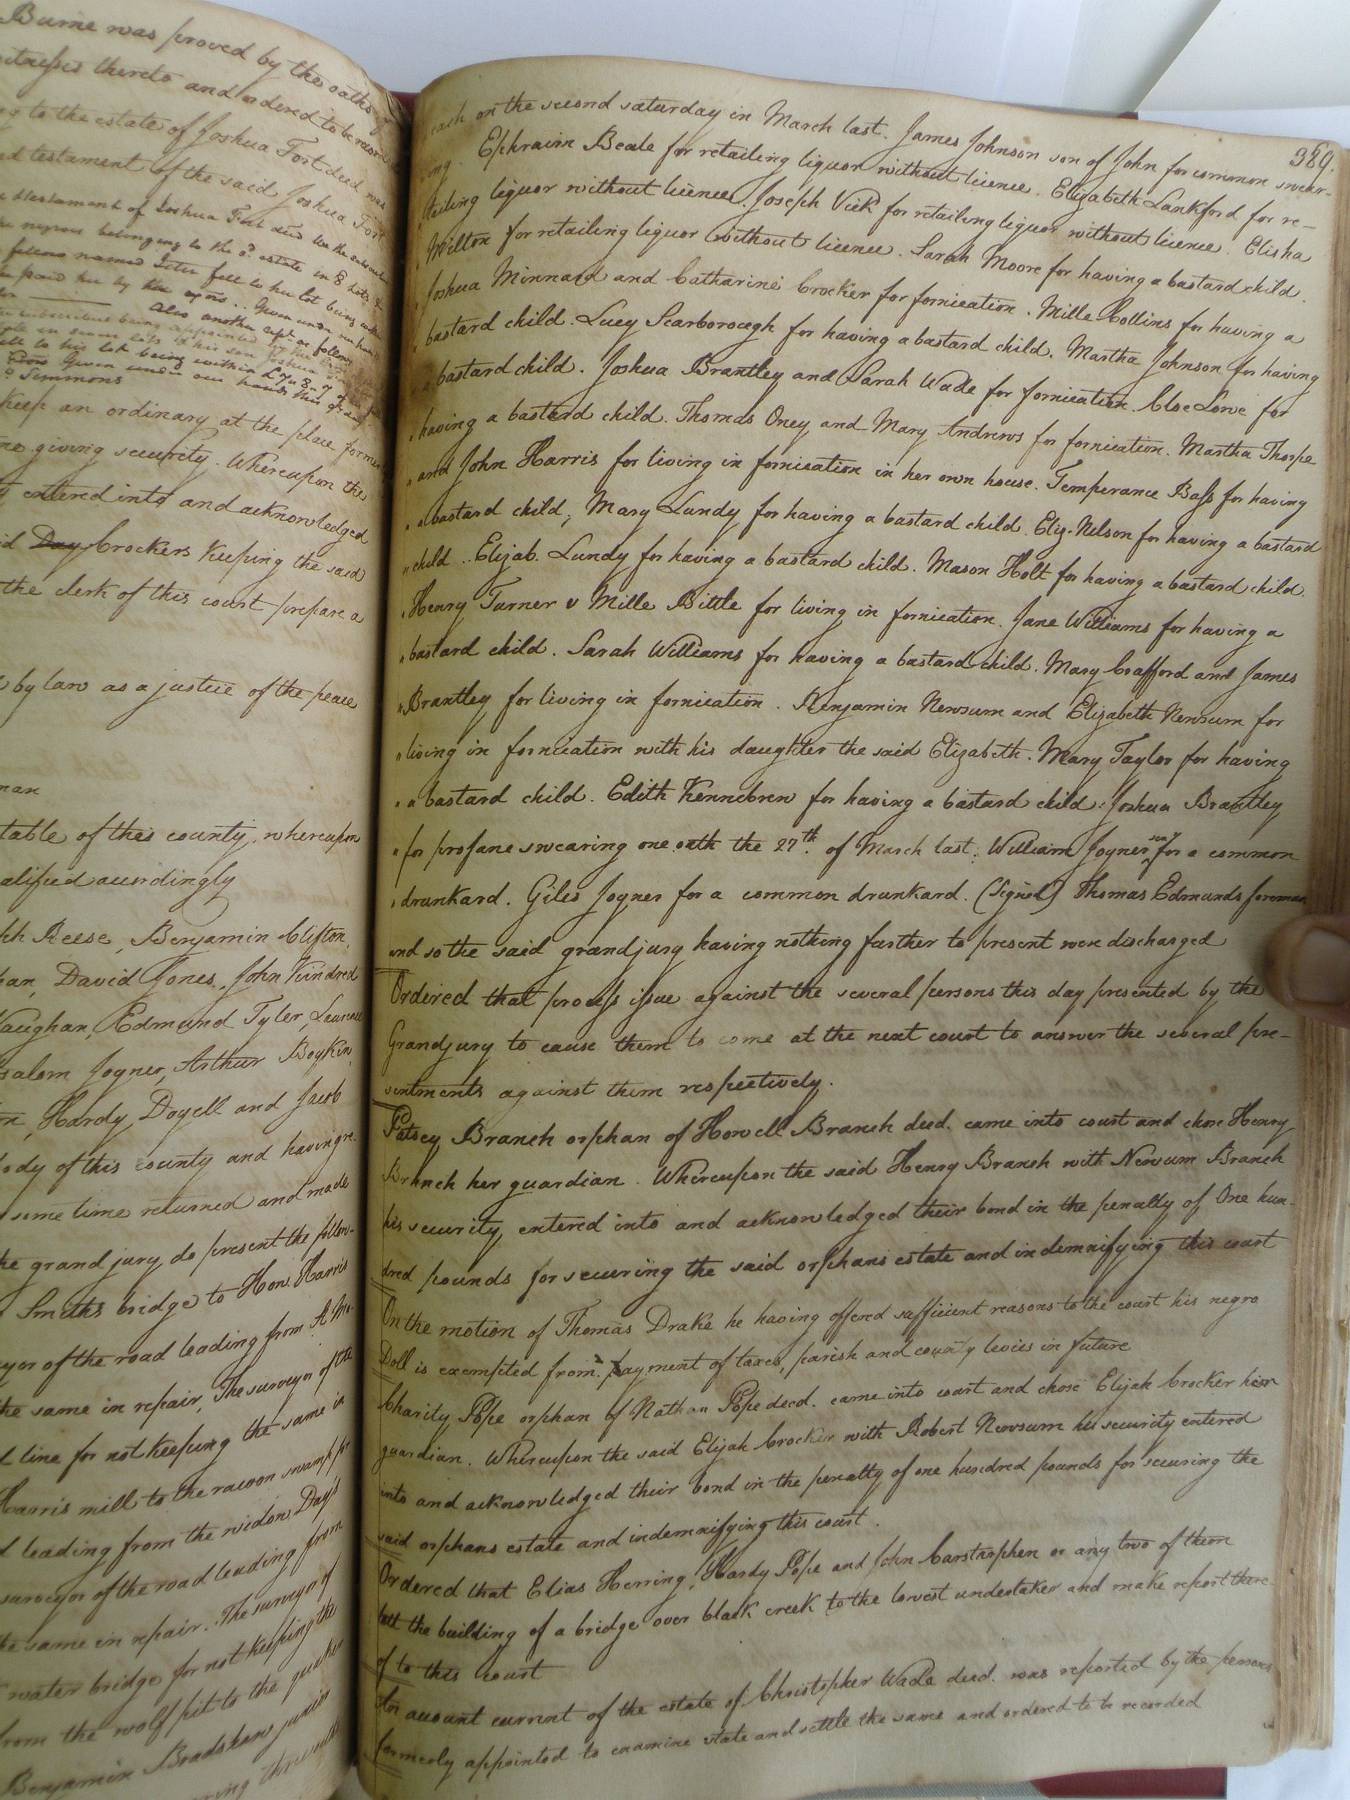 Burne was proved by the oaths
witnesses thereto and ordered to be record
to the estate of Joshua Fort deced was
testament of the said Joshua Fort
testament of Joshua Fort decd
negroes belonging to the sd. estate in 8 lots &
fellow named Peter fell to her lot being
paid her by the exors .. Given under our hands
Also another
fell to his lot being within
Given under our hands this
Simmons
keep an ordinary at the place former
giving security. Whereupon the
entered into and acknowledged
Day Crockers keeping the said
the clerk of this court prepare a
by law as a justice of the peace
table of this county, whereupon
alified accordingly
Reese, Benjamin Clifton,
David Jones, John Kindred
Vaughan, Edmund Tyler,
salom Joyner, Arthur Boykin,
Hardy Doyell and Jacob
body of this county and having re
some time returned and made
the grand jury do present the follow-
Smiths bridge to How. Harris
yor of the road leading from
the same in repair, The surveyor of the
line for not keeping the same in
Harris mill to the racoon swamp
leading from the widow Days
surveyor of the road leading from
the same in repair. The surveyor of
water bridge for not keeping the
from the wolf pit to the quaker
Benjamin Bradshaw junior
389.
each on the second saturday in March last. James Johnson son of John for common swear-
ing. Ephraim Beale for retailing liquor without licence. Elizabeth Lankford for re-
tailing liquor without licence. Joseph Vick for retailing liquor without licence. Elisha
Milton for retailing liquor without licence. Sarah Moore for having a bastard child.
Joshua Minnard and Catharine Crocker for fornication. Mille Collins for having a
bastard child. Lucy Scarborough for having a bastard child. Martha Johnson for having
a bastard child. Joshua Brantley and Sarah Wade for fornication. Cloe Love for
having a bastard child. Thomas Oney and Mary Andrews for fornication. Martha Thorpe
and John Harris for living in fornication in her own house. Temperance Bass for having
a bastard child, Mary Lundy for having a bastard child. Eliz. Nelson for having a bastard
child .. Elizab. Lundy for having a bastard child. Mason Holt for having a bastard child.
Henry Turner v Mille Bittle for living in fornication. Jane Williams for having a
bastard child. Sarah Williams for having a bastard child. Mary Crafford and James
Brantley for living in fornication. Benjamin Newsum and Elizabeth Newsum for
living in fornication with his daughter the said Elizabeth. Mary Taylor for having
a bastard child. Edith Kennebrew for having a bastard child. Joshua Brantley
for profane swearing one oath the 27th. of March last. William Joyner senr for a common
drunkard. Giles Joyner for a common drunkard. (Signed) Thomas Edmunds foreman
and so the said grandjury having nothing further to present were discharged
Ordered that process issue against the several persons this day presented by the
Grandjury to cause them to come at the next court to answer the several pre-
sentments against them respectively.
Patsey Branch orphan of Howell Branch decd. came into court and chose Henry
Branch her guardian. Whereupon the said Henry Branch with Newsum Branch
his security, entered into and acknowledged their bond in the penalty of One hun-
dred pounds for securing the said orphans estate and indemnifying this court
On the motion of Thomas Drake he having offered sufficient reasons to the court his negro
Doll is exempted from payment of taxes, parish and county levies in future
Charity Pope orphan of Nathan Pope decd. came into court and chose Elijah Crocker her
guardian. Whereupon the said Elijah Crocker with Robert Newsum his security entered
into and acknowledged their bond in the penalty of one hundred pounds for securing the
said orphans estate and indemnifying this court.
Ordered that Elias Herring, Hardy Pope and John Carstaphen or any two of them
lett the building of a bridge over black creek to the lowest undertaker and make report there
of to this court
An account current of the estate of Christopher Wade decd. was reported by the persons
formerly appointed to examine state and settle the same and ordered to be recorded